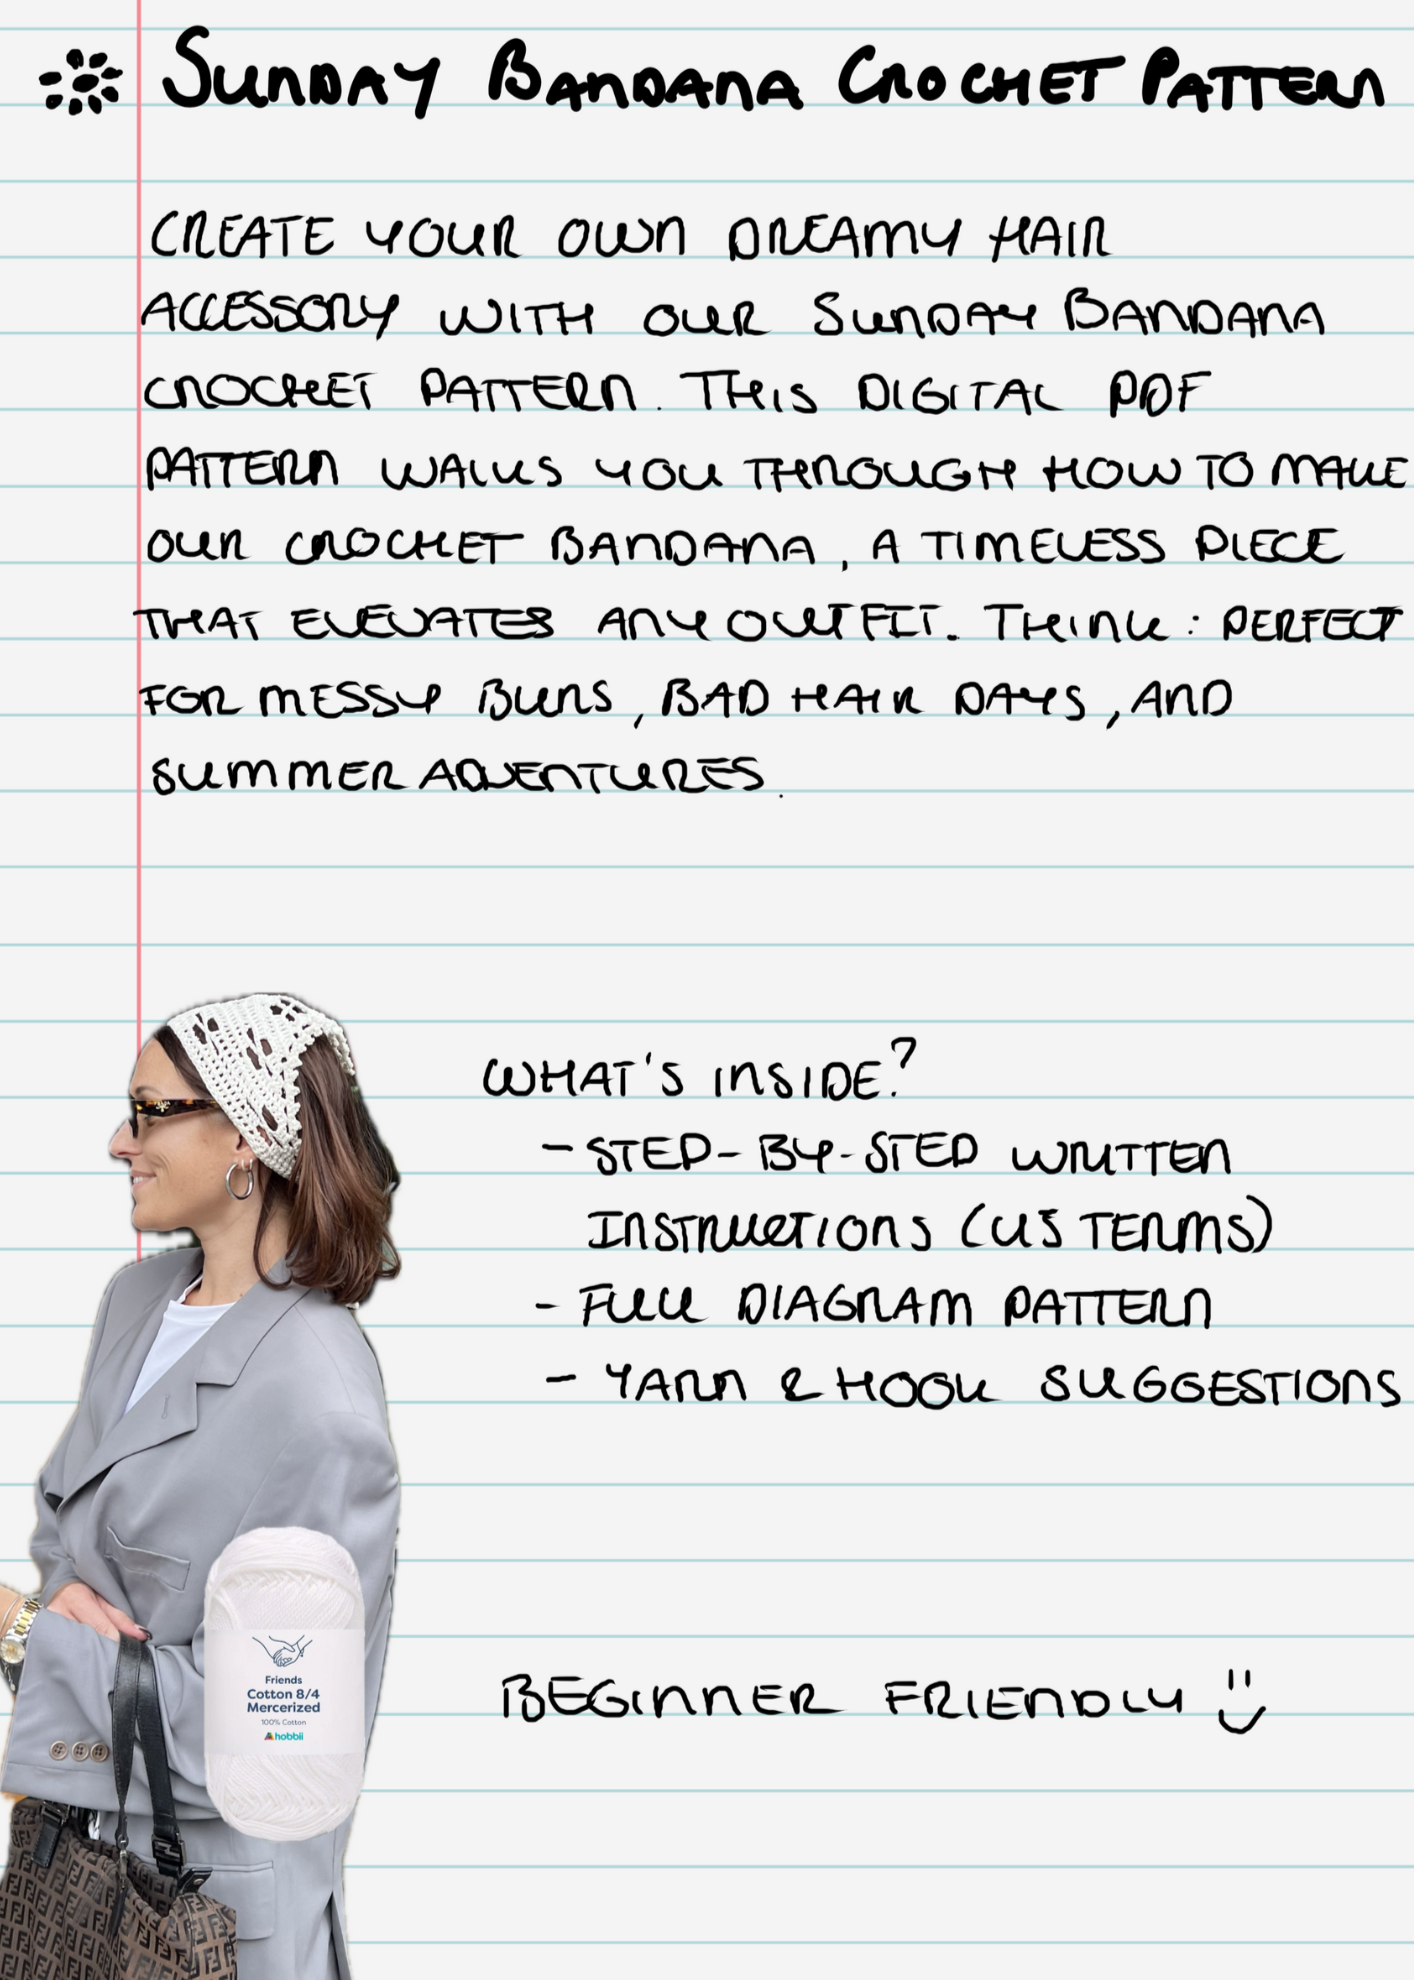 SUNDAY BANDANA CROCHET PATTERN
CREATE YOUR OWN DREAMY HAIR
ACCESSORY WITH OUR SUNDAY BANDANA
CROCHET PATTERN. THIS DIGITAL PDF
PATTERN WALKS YOU THROUGH HOW TO MAKE
OUR CROCHET BANDANA, A TIMELESS PIECE
THAT ELEVATES ANY OUTFIT. THINK: PERFECT
FOR MESSY BUNS, BAD HAIR DAYS, AND
SUMMER ADVENTURES.
WHAT'S INSIDE?
- STEP-BY-STEP WRITTEN
INSTRUCTIONS (US TERMS)
- FULL DIAGRAM PATTERN
- YARN & HOOK SUGGESTIONS
Friends
Cotton 8/4
Mercerized
100% Cotton
hobbii
BEGINNER FRIENDLY